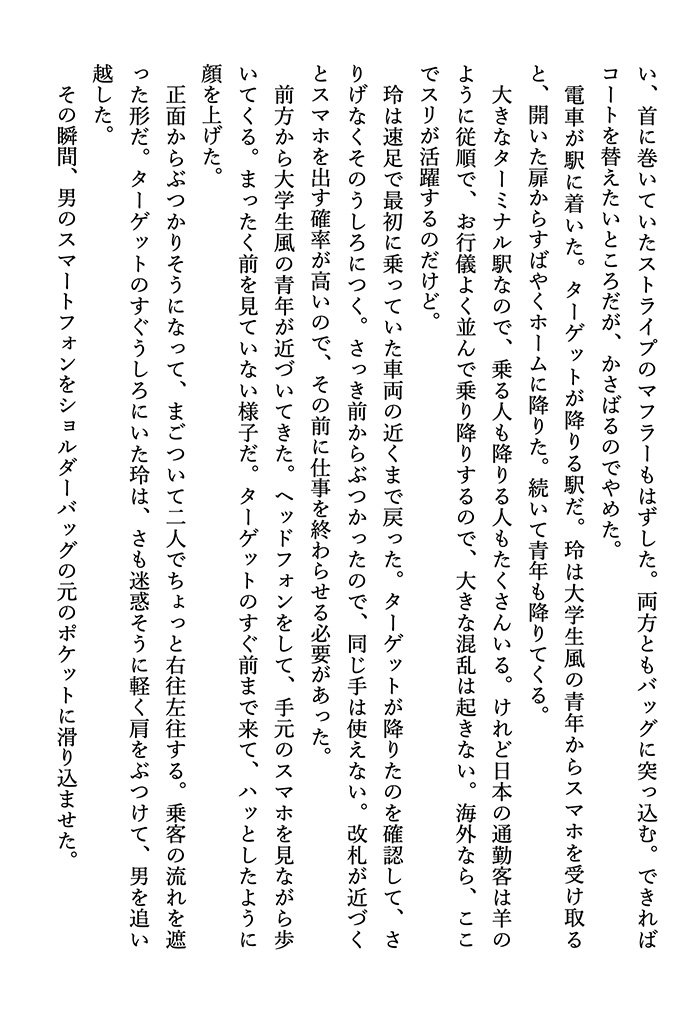 い、首に巻いていたストライプのマフラーもはずした。両方ともバッグに突っ込む。できれば
コートを替えたいところだが、かさばるのでやめた。
　電車が駅に着いた。ターゲットが降りる駅だ。玲は大学生風の青年からスマホを受け取る
と、開いた扉からすばやくホームに降りた。続いて青年も降りてくる。
　大きなターミナル駅なので、乗る人も降りる人もたくさんいる。けれど日本の通勤客は羊の
ように従順で、お行儀よく並んで乗り降りするので、大きな混乱は起きない。海外なら、ここ
でスリが活躍するのだけど。
　玲は速足で最初に乗っていた車両の近くまで戻った。ターゲットが降りたのを確認して、さ
りげなくそのうしろにつく。さっき前からぶつかったので、同じ手は使えない。改札が近づく
とスマホを出す確率が高いので、その前に仕事を終わらせる必要があった。
　前方から大学生風の青年が近づいてきた。ヘッドフォンをして、手元のスマホを見ながら歩
いてくる。まったく前を見ていない様子だ。ターゲットのすぐ前まで来て、ハッとしたように
顔を上げた。
　正面からぶつかりそうになって、まごついて二人でちょっと右往左往する。乗客の流れを遮
った形だ。ターゲットのすぐうしろにいた玲は、さも迷惑そうに軽く肩をぶつけて、男を追い
越した。
　その瞬間、男のスマートフォンをショルダーバッグの元のポケットに滑り込ませた。